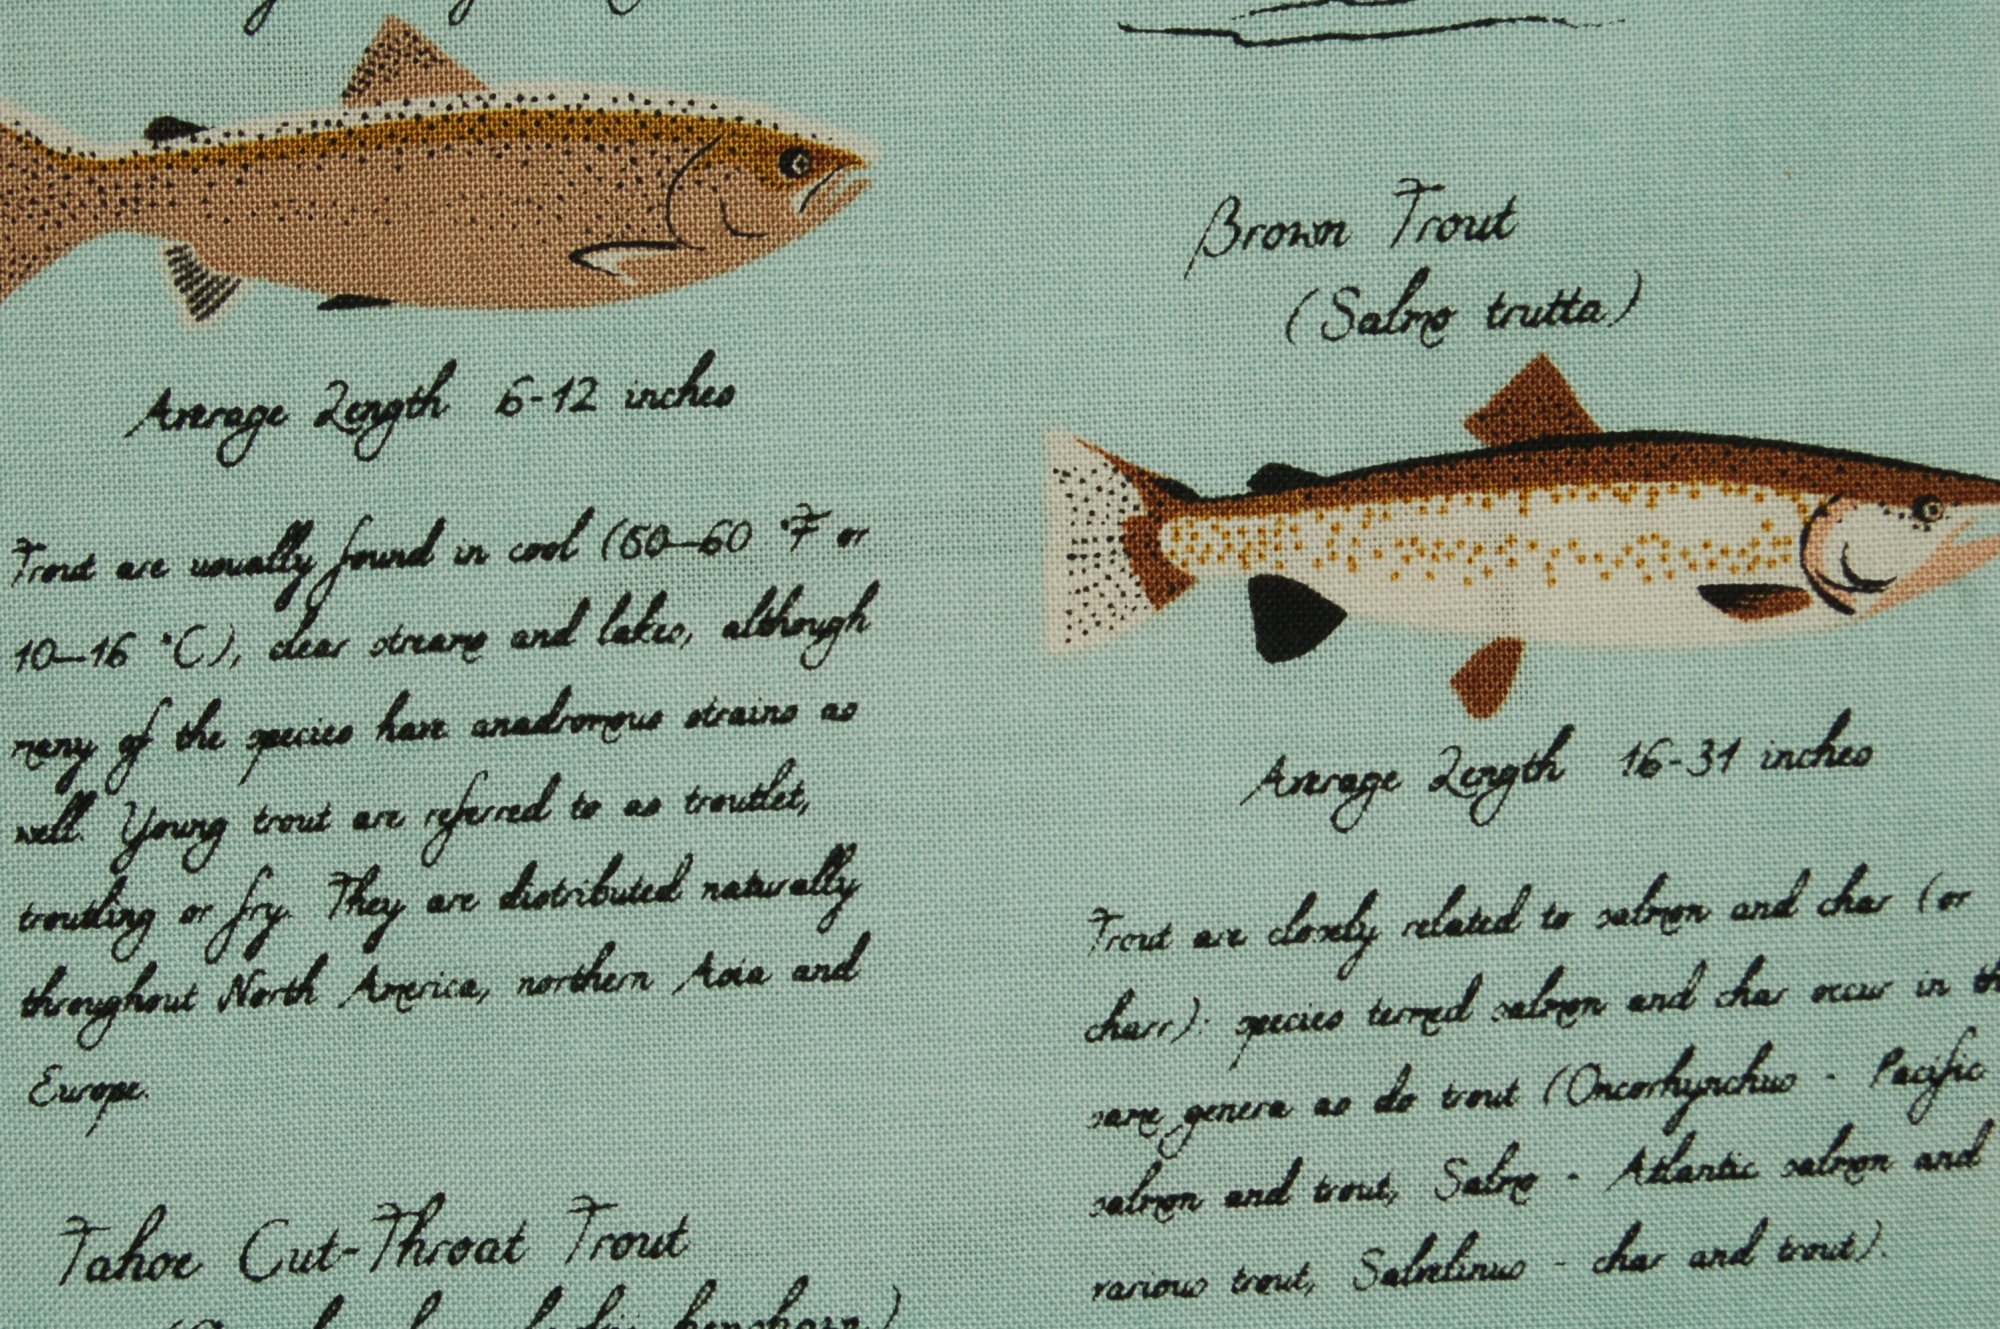 Average Length 6-12 inches
Trout are usually found in cool (50–60 °F or
10–16 °C), clear streams and lakes, although
many of the species have anadromous strains as
well. Young trout are referred to as troutlet,
troutling or fry. They are distributed naturally
throughout North America, northern Asia and
Europe.
Tahoe Cut-Throat Trout
henshawi)
Brown Trout
(Salmo trutta)
Average Length 16-31 inches
Trout are closely related to salmon and char (or
charr): species termed salmon and char occur in th
same genera as do trout (Oncorhynchus - Pacific
salmon and trout, Salmo - Atlantic salmon and
various trout, Salvelinus - char and trout).